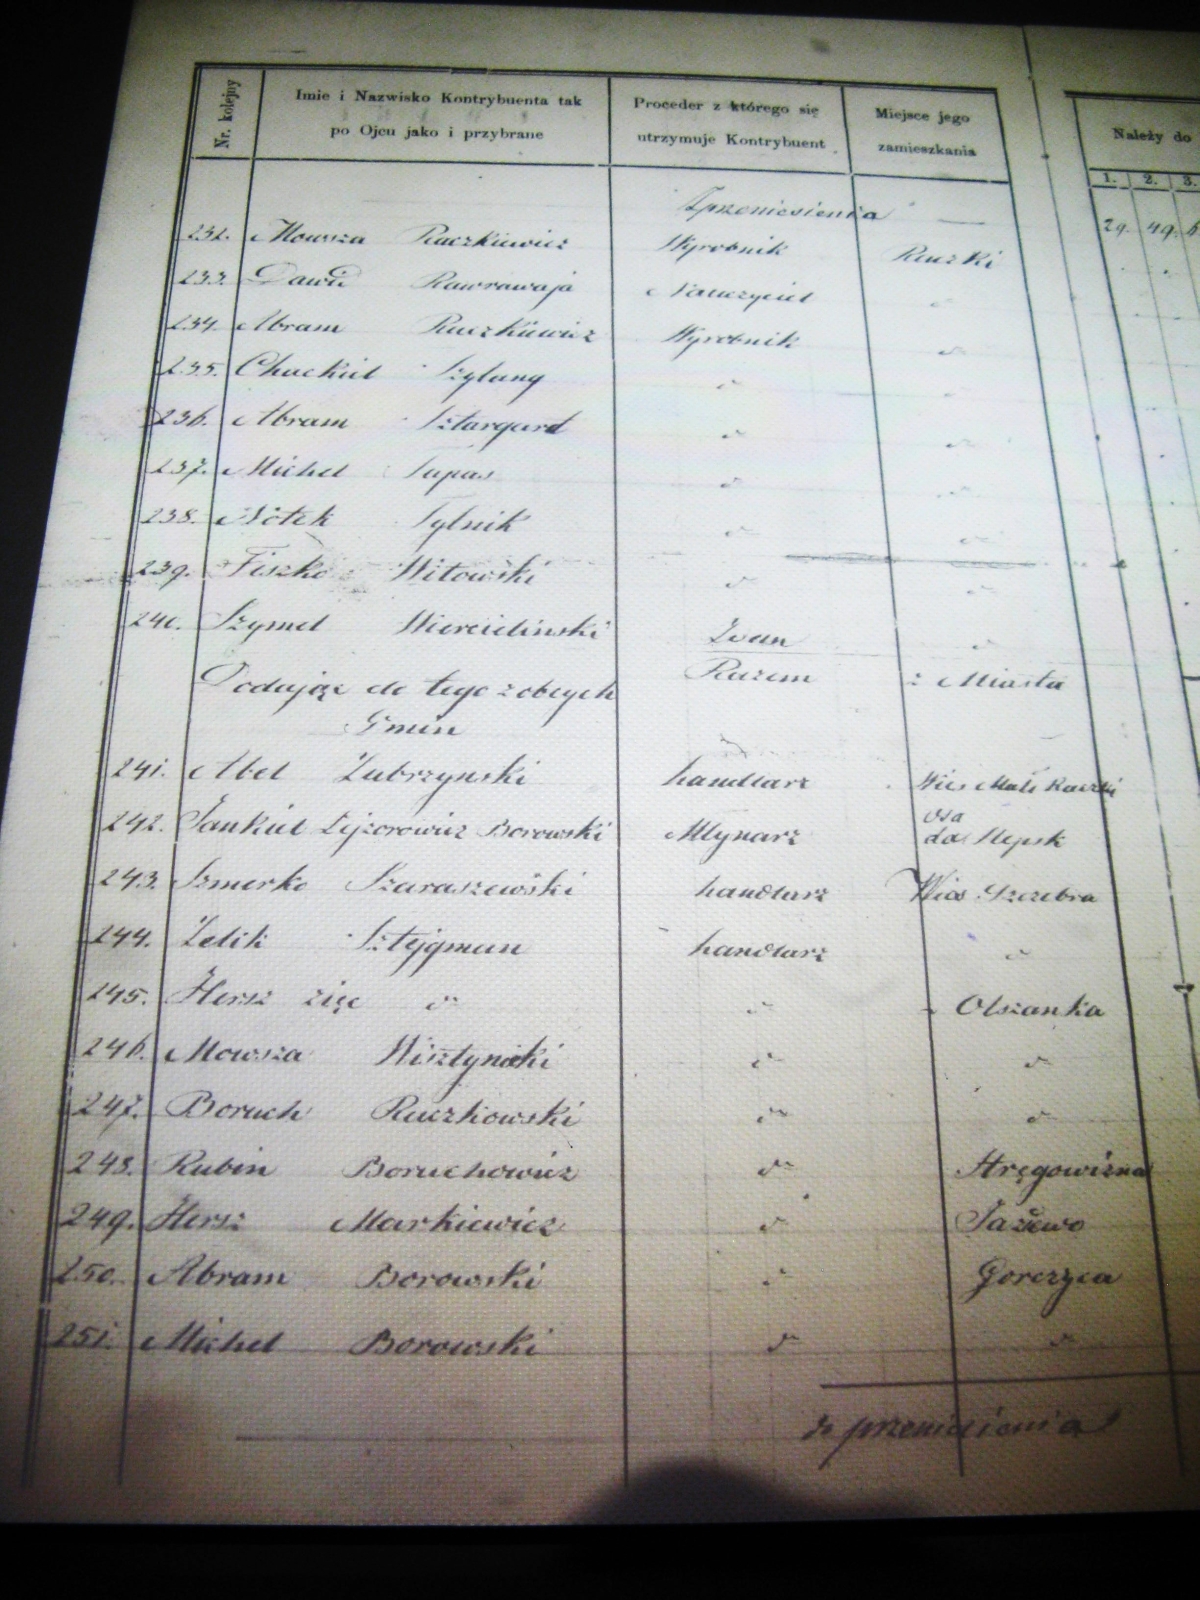 Nr. kolejny
Imie i Nazwisko Kontrybuenta tak
po Ojcu jako i przybrane
Proceder z którego się
utrzymuje Kontrybuent
Miejsce jego
zamieszkania
Należy do
1. 2. 3.
Z przeniesienia 29. 49. 6
232. Mowsza Raczkiewicz Wyrobnik Raczki
233. Dawid Nauczyciel "
234. Abram Raczkiewicz Wyrobnik "
235. Chackiel Szylang " "
236. Abram Sztargard " "
237. Michel Tapas " "
238. Notek Tylnik " "
239. Fiszko Witowski " "
240. Szymel "
Razem z Miasta
Dodając do tego z obcych
Gmin
241. Abel Zubrzynski handlarz Wieś Małe Raczki
242. Jankiel Lejzorowicz Borowski Młynarz Osa
da
243. Szmerko Szaraszewski handlarz Wieś Szczebra
244. Zelik Sztejgman handlarz "
245. Hersz zięć " " " Olszanka
246. Mowsza " "
247. Boruch Raczkowski " "
248. Rubin Boruchowicz " Stręgowizna
249. Hersz Markiewicz " Jaśzewo
250. Abram Borowski " Gorczyca
251. Michel Borowski " "
do przeniesienia